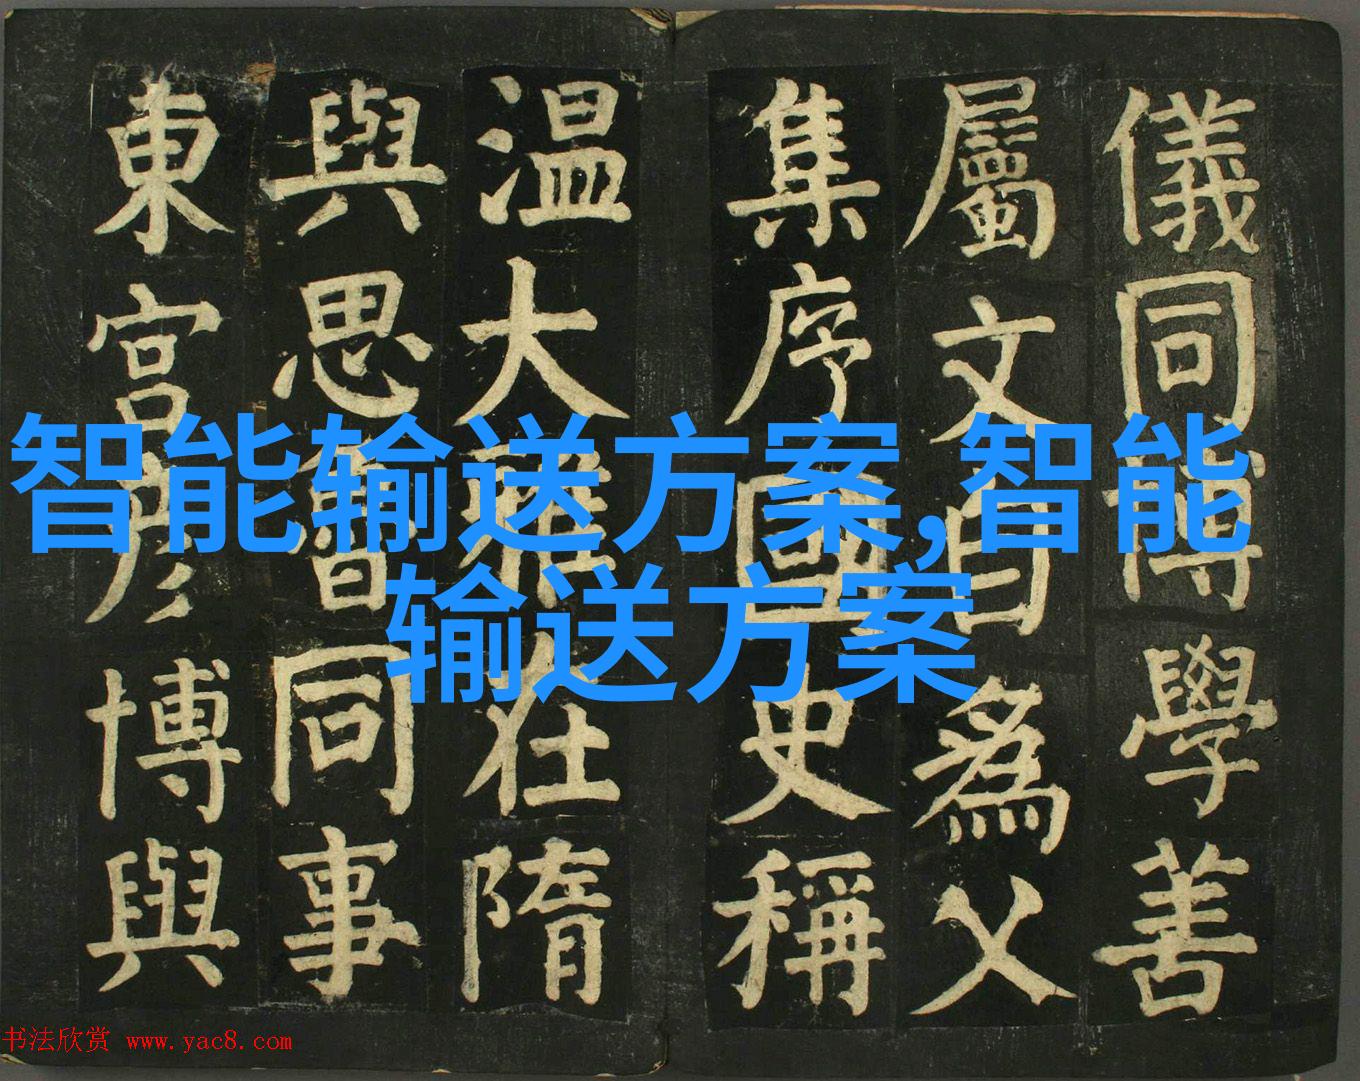 儀同博學善
屬文自為父
集序國史稱
温大雅在隋
與思魯同事
東宮彦博與
智能输送方案,智能
输送方案
书法欣赏 www.yac8.com